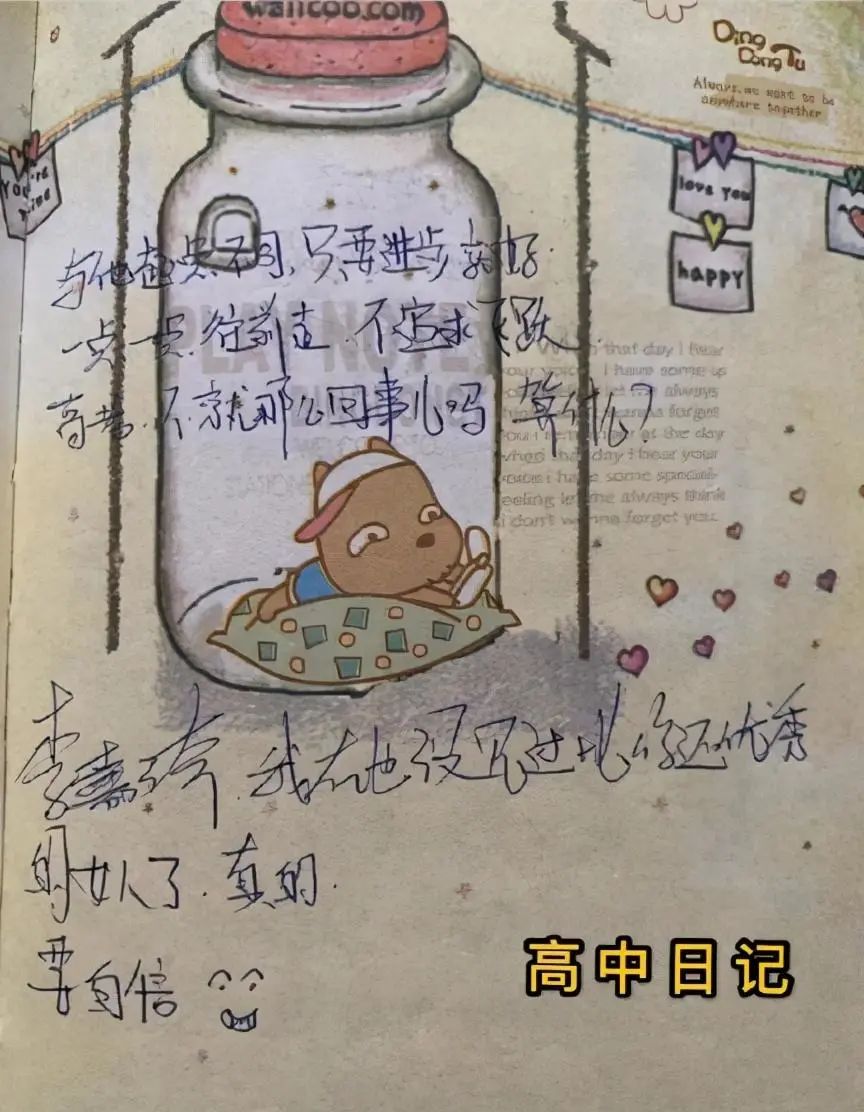 wallcoo.com
Ding
Dang Tu
Always, we want to be
anywhere together
You're
mine
love you
happy
与他起点不同,只要进步就好.
一点一点.往前走.不追求飞跃.
高考.不就那么回事儿吗 算什么?
PLAY NOTE
When that day I hear
your voice I have some sp
let me always
wanna forget
at the day
when day I hear your
voice I have some special
feeling let me always think
I don't wanna forget you.
李嘉琦.我在也没见过比你还优秀
的女人了.真的.
要自信
高中日记